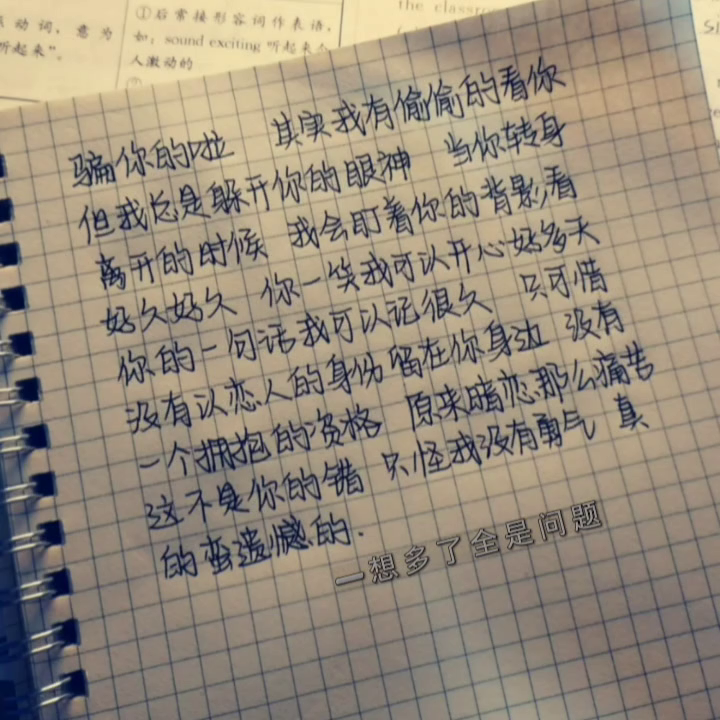 动词，意为
听起来”。
①后常接形容词作表语，
如：sound exciting 听起来令
人激动的
the classroo
骗你的啦 其实我有偷偷的看你
但我总是躲开你的眼神 当你转身
离开的时候 我会盯着你的背影看
好久好久 你一笑我可以开心好多天
你的一句话我可以记很久 只可惜
没有以恋人的身份留在你身边 没有
一个拥抱的资格 原来暗恋那么痛苦
这不是你的错 只怪我没有勇气 真
的蛮遗憾的.
一想多了全是问题